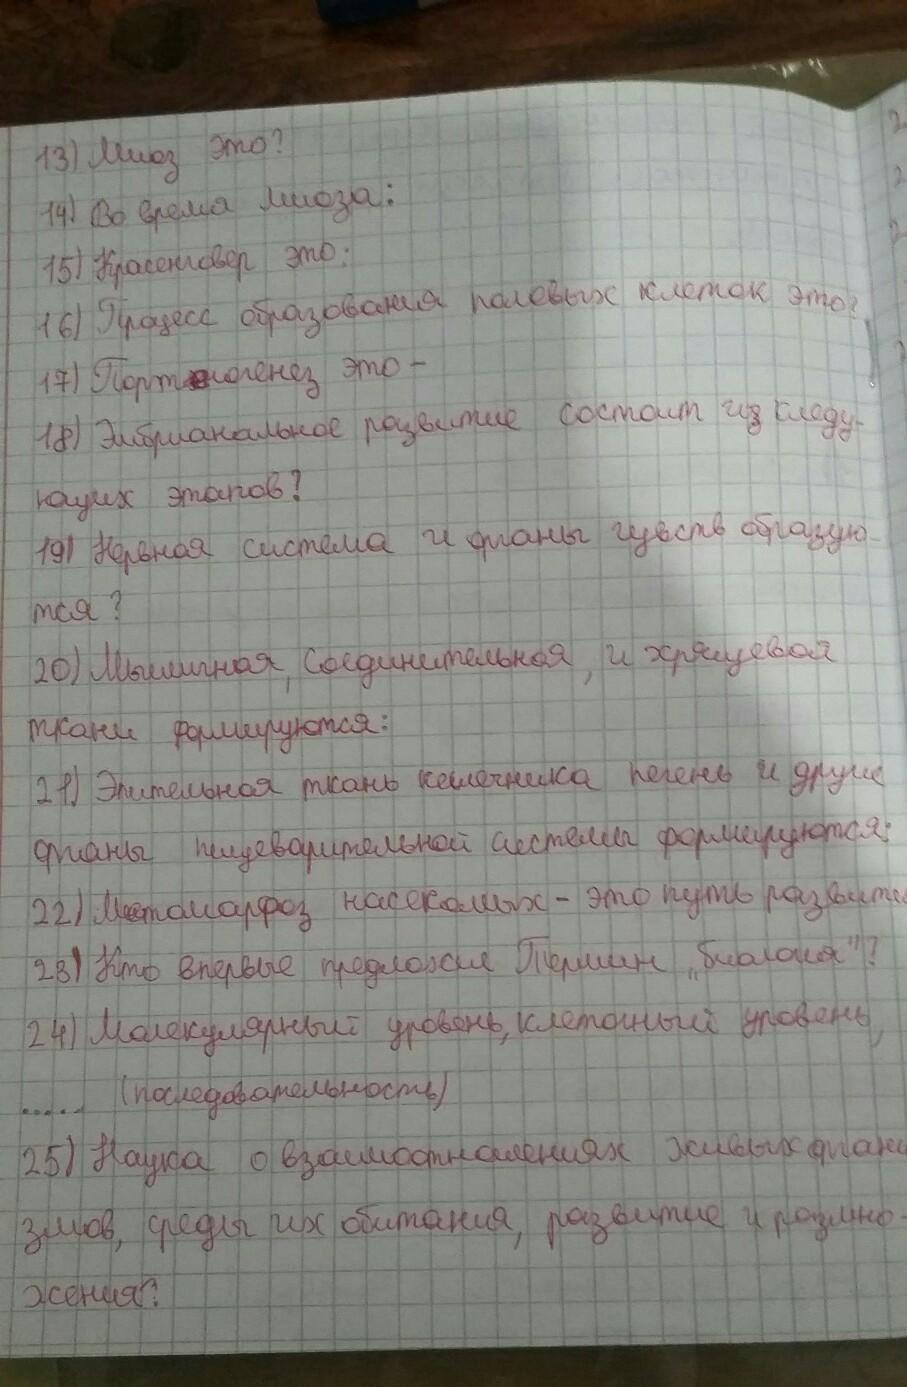 13) Миоз это?
14) Во время миоза:
15) Красенговер это:
16) Працесс образования палевых клеток это?
17) Портеногенез это -
18) Эмбрианальное развитие состоит из следу-
ющих этапов?
19) Нервная система и органы чувств образую-
тся?
20) Мышичная, соединительная, и хрящевая
ткани формируются:
21) Эпительная ткань кешечника печень и други
органы пищеварительной системы формируются:
22) Метоморфоз насекомых - это путь развити
23) Кто впервые предложил Термин „биалогия"?
24) Малекулярный уровень, клеточный уровень,
..... (последовательность)
25) Наука о взаимоотношениях живых органи
змов, среды их обитания, развитие и размно-
жения?